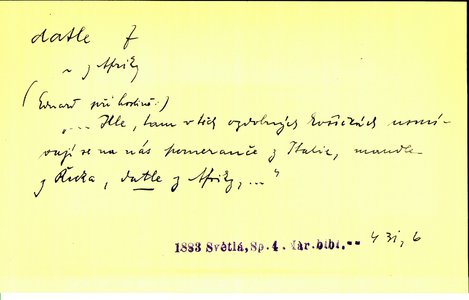 datle f
~ z Afriky
(Eduard při hostině:)
„... Hle, tam v těch ozdobných košíčkách usmí-
vají se na nás pomeranče z Italie, mandle
z Řecka, datle z Afriky, ..."
1883 Světlá, Sp. 4. Nar. bibl. -- 431, 6